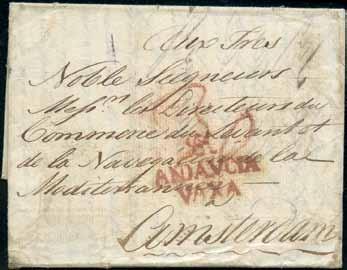 Aux Tres
Noble Seigneurs
Mess.rs les Directeurs du
Commerce du Levant et
de la Navegation de la
Mediterrannée
A
ANDALVCIA
VAXA
Amsterdam